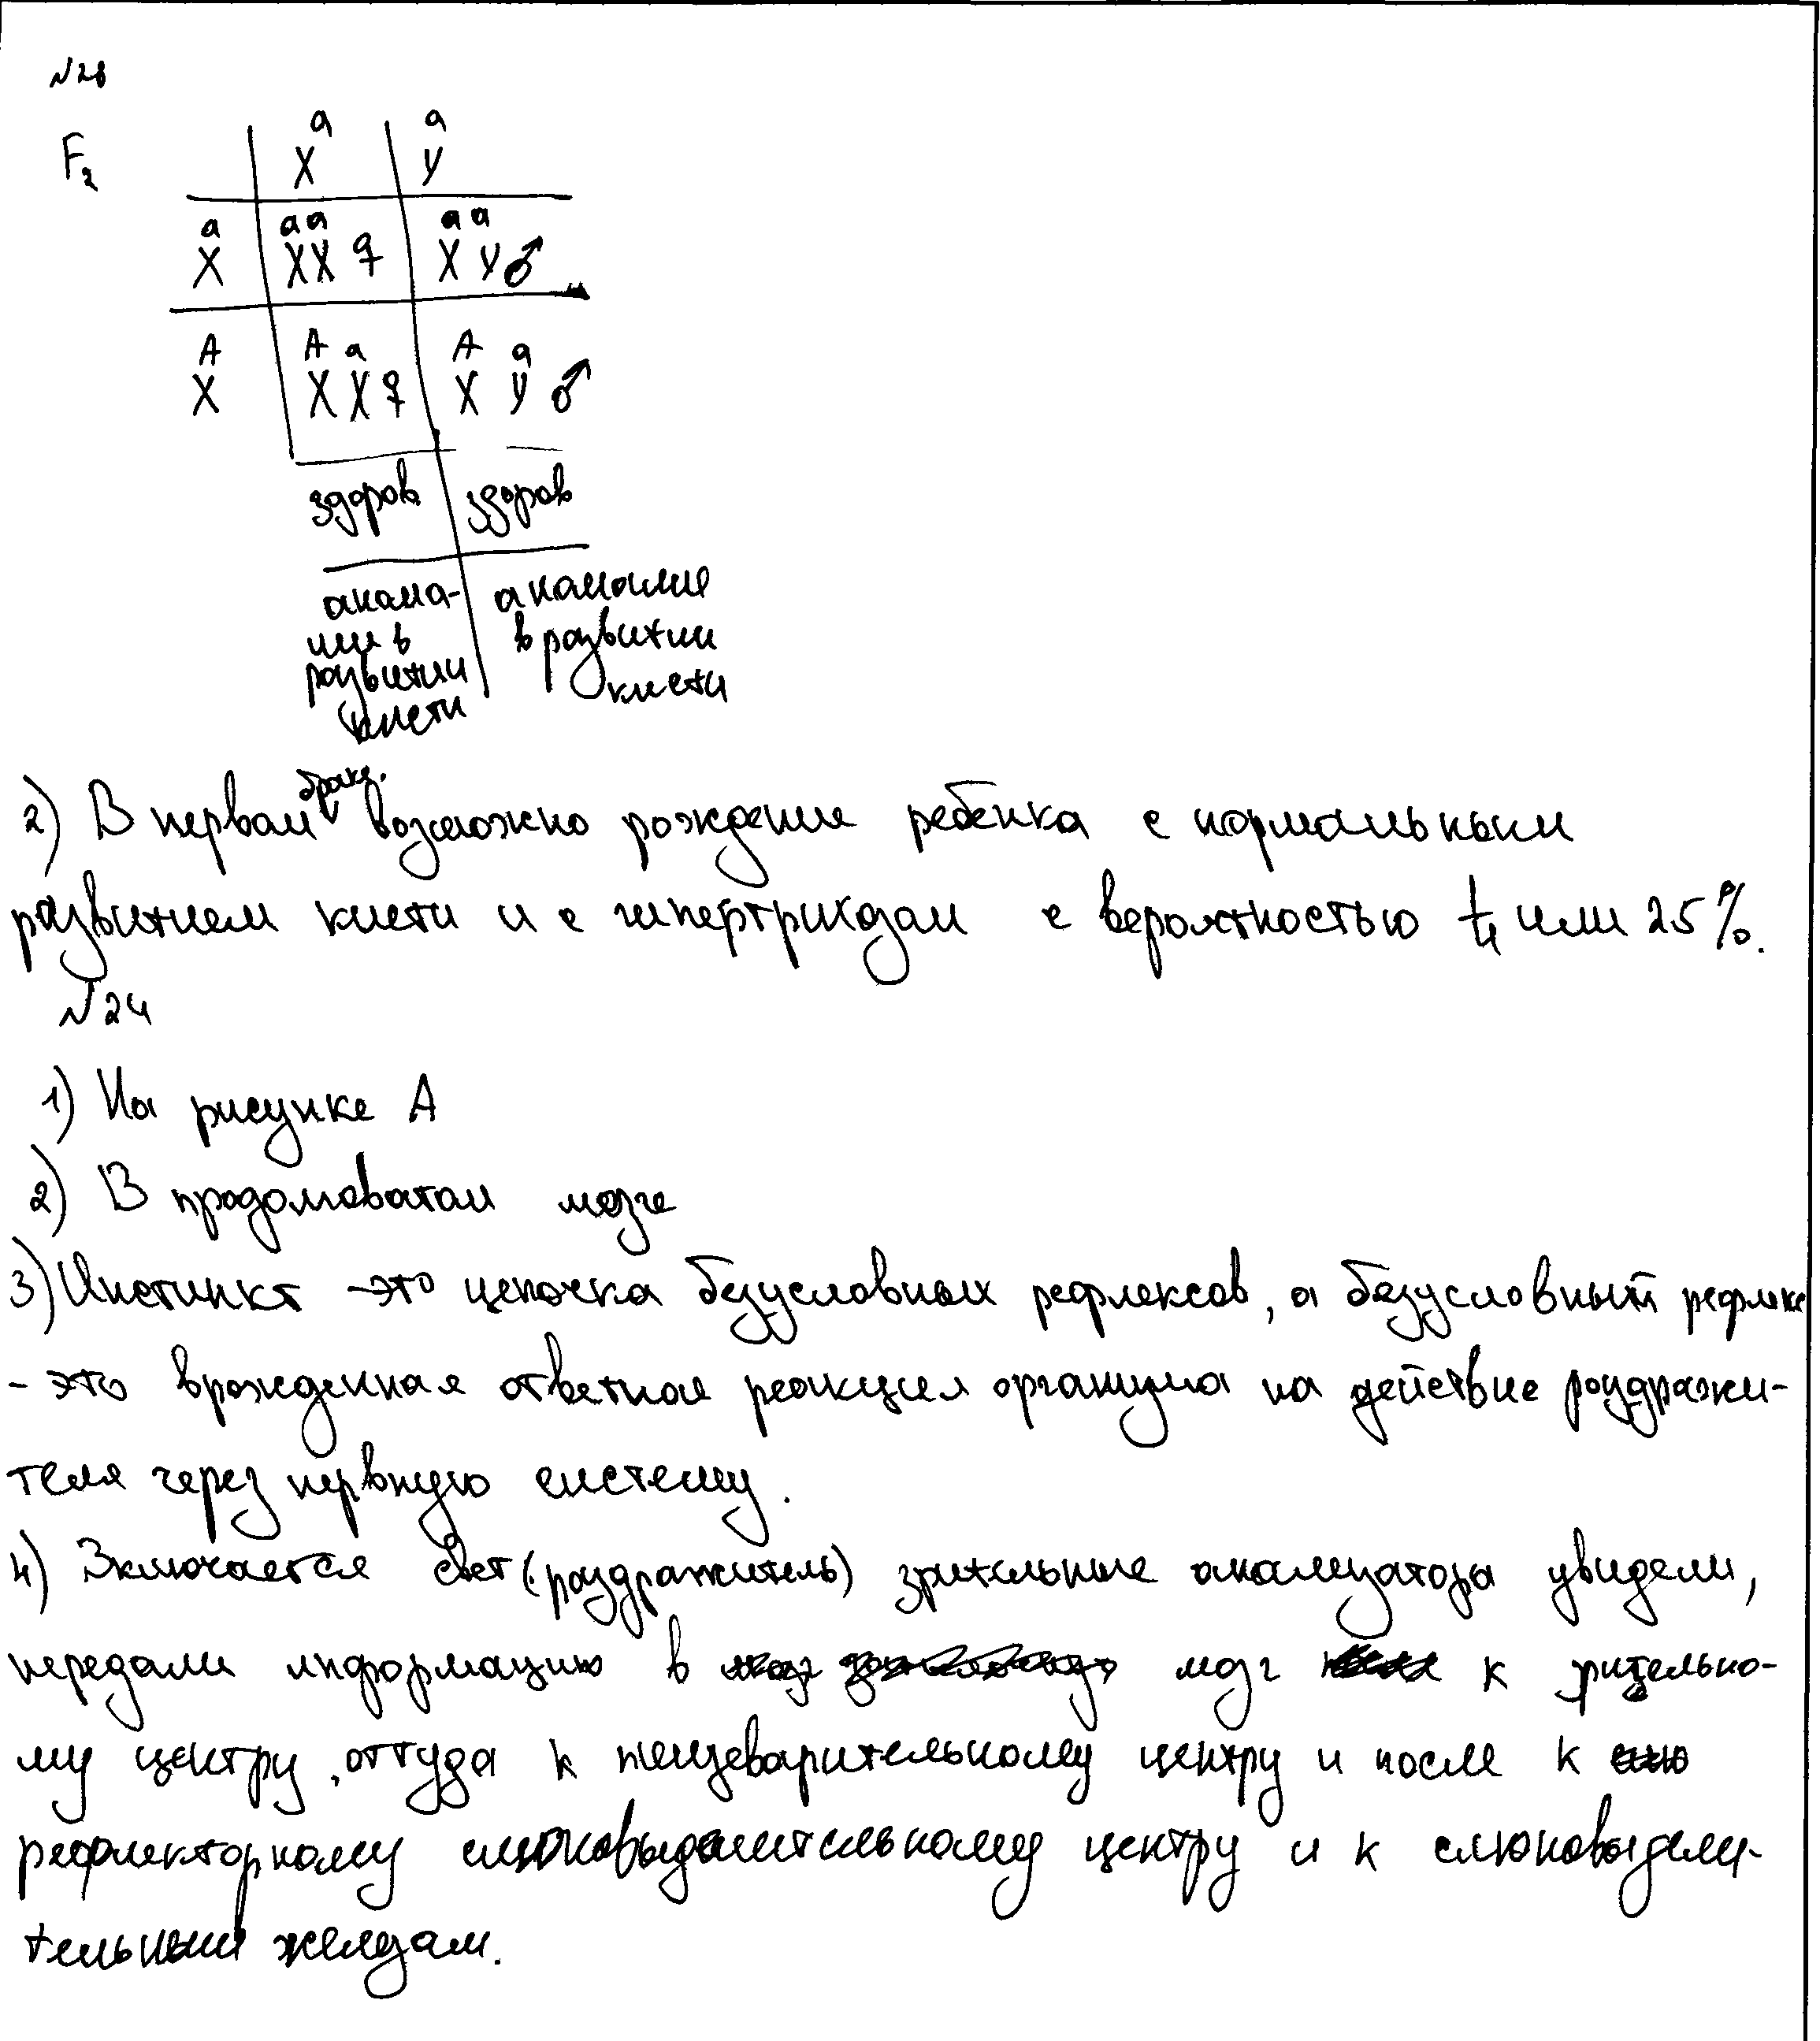 №28
F₂
a a
X У
a aa a a
X XX ♀ X У ♂
A A a A a
X X X ♀ X У ♂
здоров здоров
анома- аномалие
лии в в развитии
развитии кисти
кисти
2) В первом браке. возможно рождение ребенка с нормальным
развитием кисти и с гипертрихозом с вероятностью 1/4 или 25%.
№24
1) На рисунке А
2) В продолговатом мозге
3) Инстинкт - это цепочка безусловных рефлексов, а безусловный рефлекс
- это врожденная ответная реакция организма на действие раздражи-
теля через нервную систему.
4) Включается свет (раздражитель) зрительные анализатора увидели,
передали информацию в мозг к зрительно-
му центру, оттуда к пищеварительному центру и после к
рефлекторному слюновыделительному центру и к слюновыдели-
тельным железам.